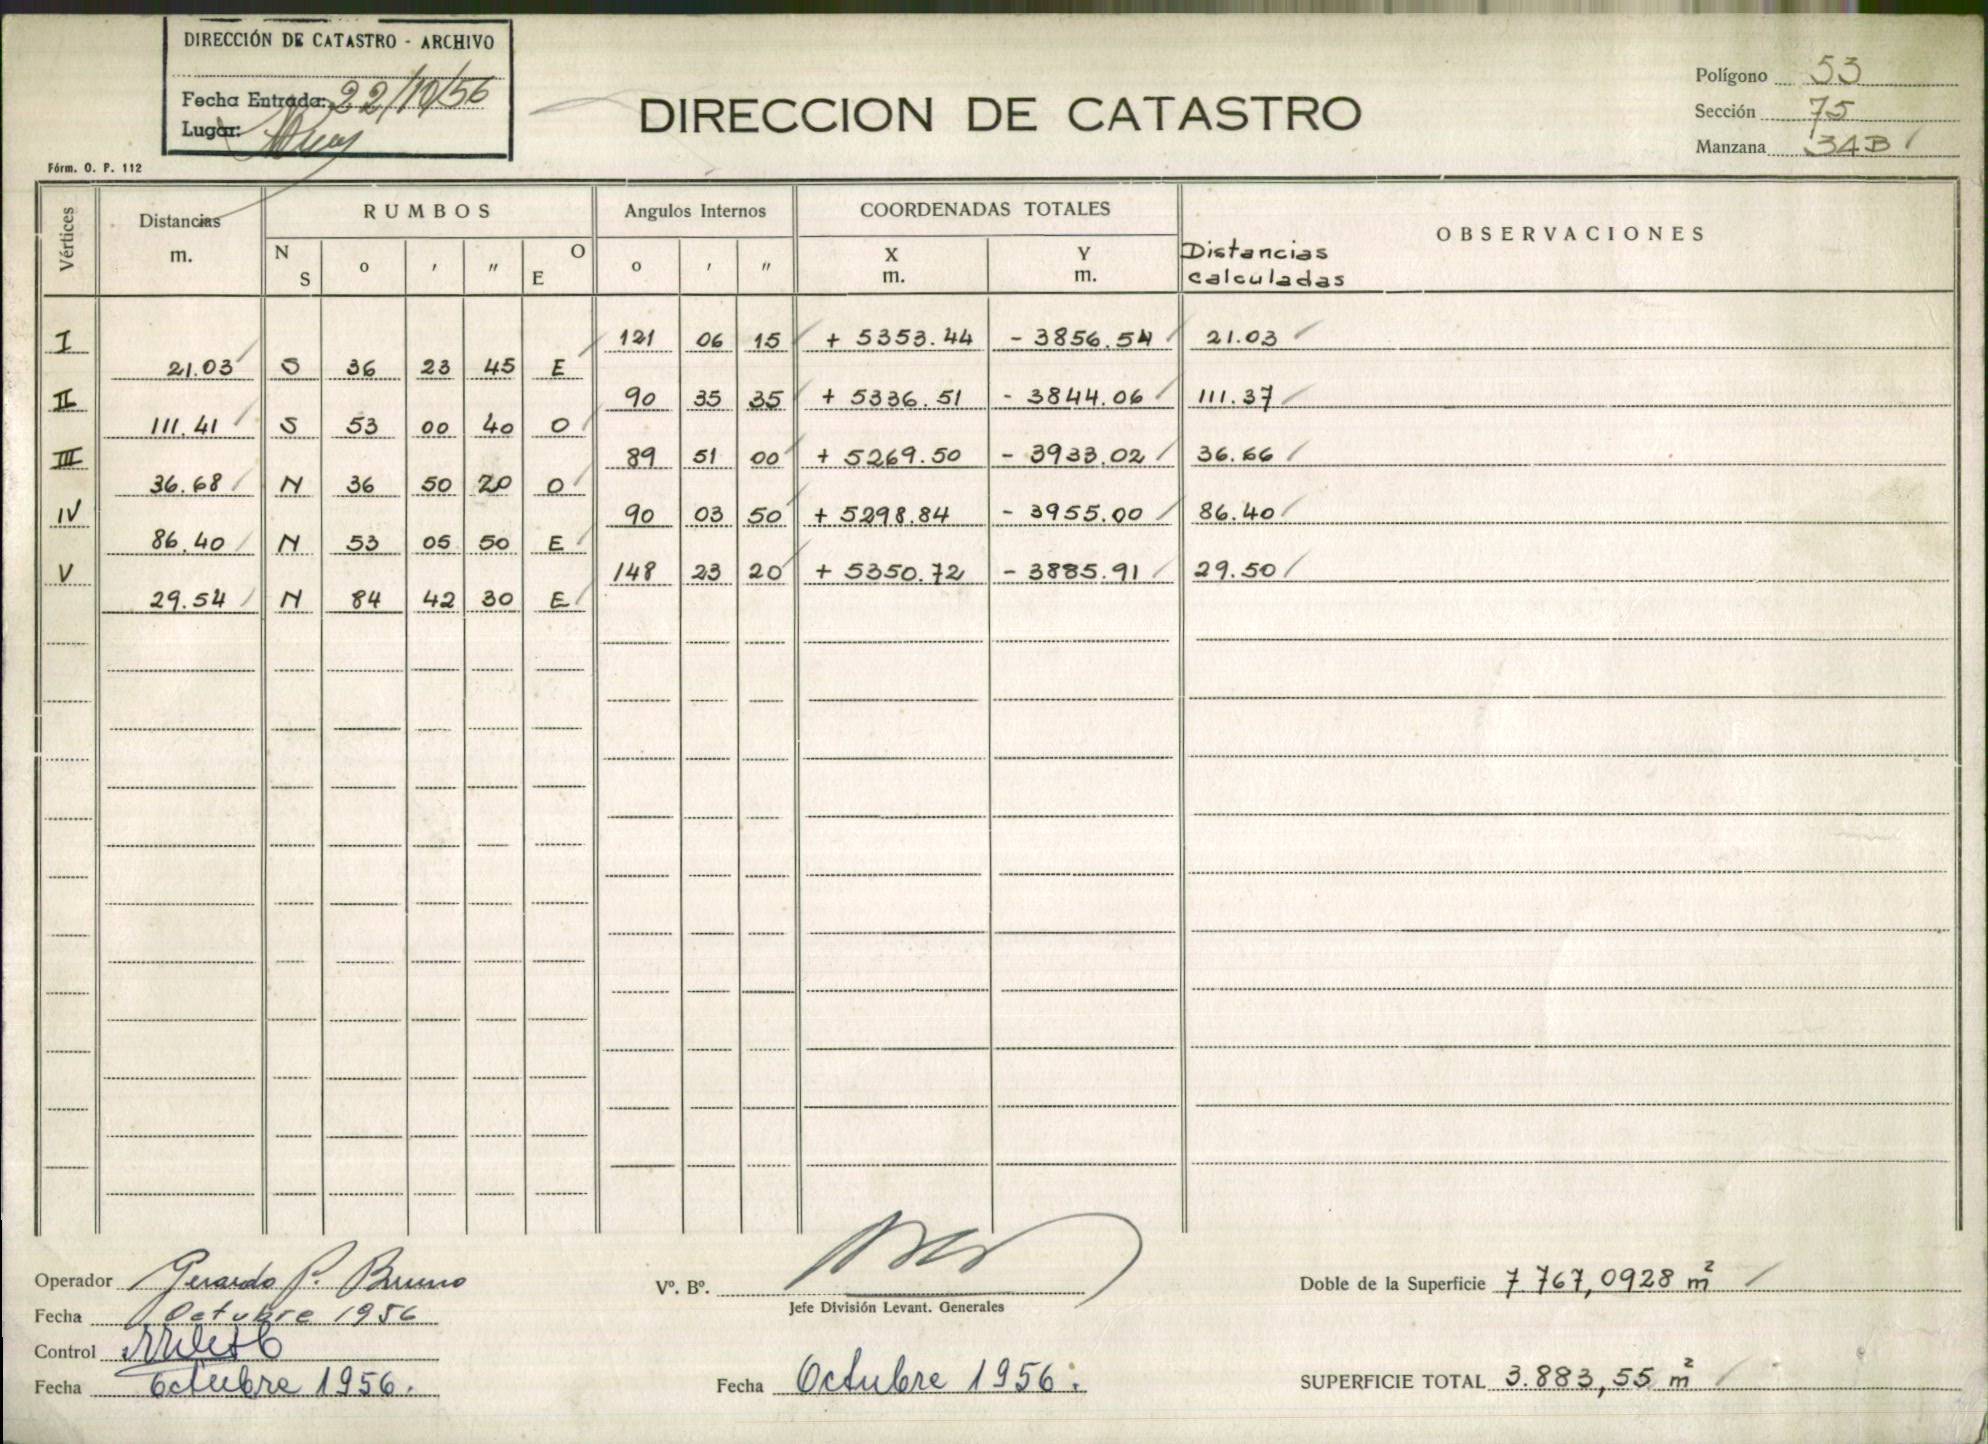 DIRECCIÓN DE CATASTRO - ARCHIVO
Fecha Entrada: 22/10/56
Lugar:
DIRECCION DE CATASTRO
Polígono 53
Sección 75
Manzana 34B
Fórm. O. P. 112
Vértices Distancias m. RUMBOS Angulos Internos COORDENADAS TOTALES OBSERVACIONES
N S o ' " O E o ' " X m. Y m. Distancias calculadas
I 121 06 15 + 5353.44 - 3856.54 21.03
21.03 S 36 23 45 E
II 90 35 35 + 5336.51 - 3844.06 111.37
111.41 S 53 00 40 O
III 89 51 00 + 5269.50 - 3933.02 36.66
36.68 N 36 50 20 O
IV 90 03 50 + 5298.84 - 3955.00 86.40
86.40 N 53 05 50 E
V 148 23 20 + 5350.72 - 3885.91 29.50
29.54 N 84 42 30 E
Operador Gerardo P. Bruno
Fecha Octubre 1956
Control
Fecha Octubre 1956.
Vº. Bº.
Jefe División Levant. Generales
Fecha Octubre 1956.
Doble de la Superficie 7767,0928 m²
SUPERFICIE TOTAL 3.883,55 m²